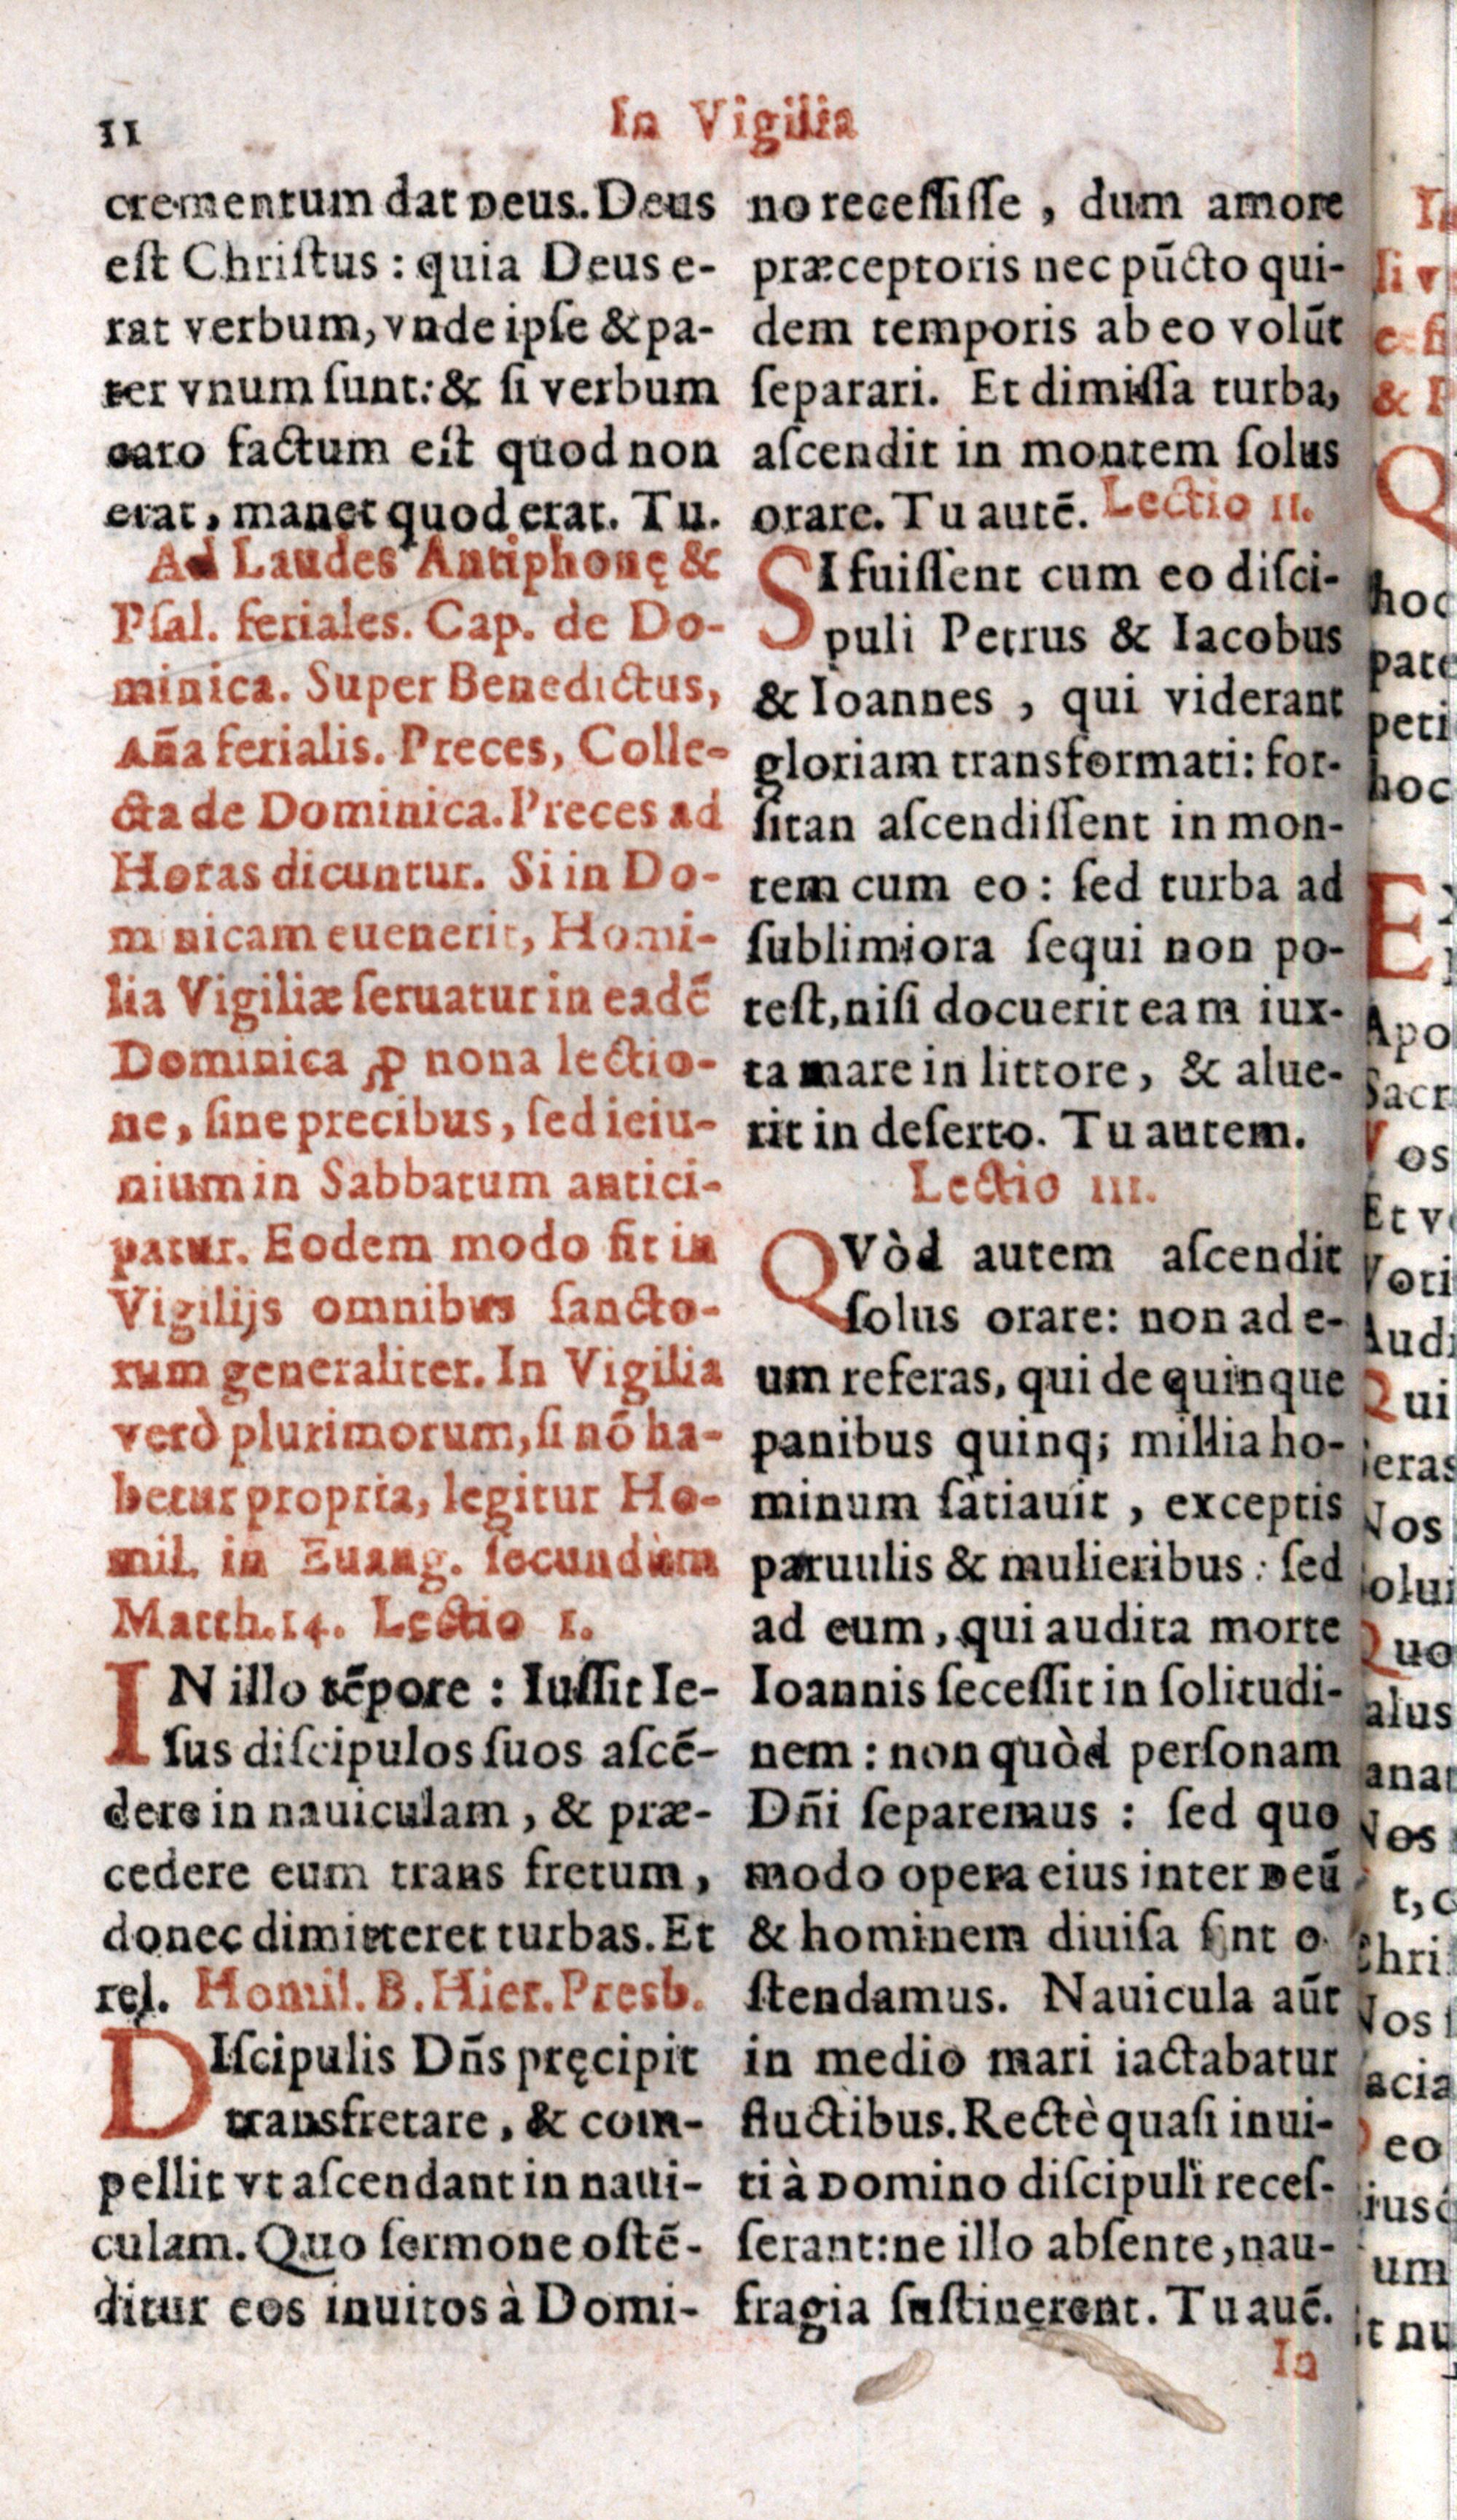 11
In Vigilia
crementum dat Deus. Deus
eſt Chriſtus: quia Deus e-
rat verbum, vnde ipſe & pa-
ter vnum ſunt: & ſi verbum
caro factum eſt quod non
erat, manet quod erat. Tu.
Ad Laudes Antiphonę &
Pſal. feriales. Cap. de Do-
minica. Super Benedictus,
Aña ferialis. Preces, Colle-
cta de Dominica. Preces ad
Horas dicuntur. Si in Do-
minicam euenerit, Homi-
lia Vigiliæ ſeruatur in eadē
Dominica ꝓ nona lectio-
ne, ſine precibus, ſed ieiu-
nium in Sabbatum antici-
patur. Eodem modo fit in
Vigilijs omnibus ſancto-
rum generaliter. In Vigilia
verò plurimorum, ſi nō ha-
betur propria, legitur Ho-
mil. in Euang. ſecundùm
Matth. 14. Lectio I.
IN illo tēpore: Iuſſit Ie-
ſus diſcipulos ſuos aſcē-
dere in nauiculam, & præ-
cedere eum trans fretum,
donec dimitteret turbas. Et
rel. Homil. B. Hier. Presb.
DIſcipulis Dñs pręcipit
transfretare, & com-
pellit vt aſcendant in naui-
culam. Quo ſermone oſtē-
ditur eos inuitos à Domi-
no receſſiſſe, dum amore
præceptoris nec pūcto qui-
dem temporis ab eo volūt
ſeparari. Et dimiſſa turba,
aſcendit in montem ſolus
orare. Tu autē. Lectio II.
SI fuiſſent cum eo diſci-
puli Petrus & Iacobus
& Ioannes, qui viderant
gloriam transformati: for-
ſitan aſcendiſſent in mon-
tem cum eo: ſed turba ad
ſublimiora ſequi non po-
teſt, niſi docuerit eam iux-
ta mare in littore, & alue-
rit in deſerto. Tu autem.
Lectio III.
QVòd autem aſcendit
ſolus orare: non ad e-
um referas, qui de quinque
panibus quinq; millia ho-
minum ſatiauit, exceptis
paruulis & mulieribus: ſed
ad eum, qui audita morte
Ioannis ſeceſſit in ſolitudi-
nem: non quòd perſonam
Dñi ſeparemus: ſed quo
modo opera eius inter Deū
& hominem diuiſa ſint o-
ſtendamus. Nauicula aūt
in medio mari iactabatur
fluctibus. Rectè quaſi inui-
ti à Domino diſcipuli receſ-
ſerant: ne illo abſente, nau-
fragia ſuſtinerent. Tu auē.
In